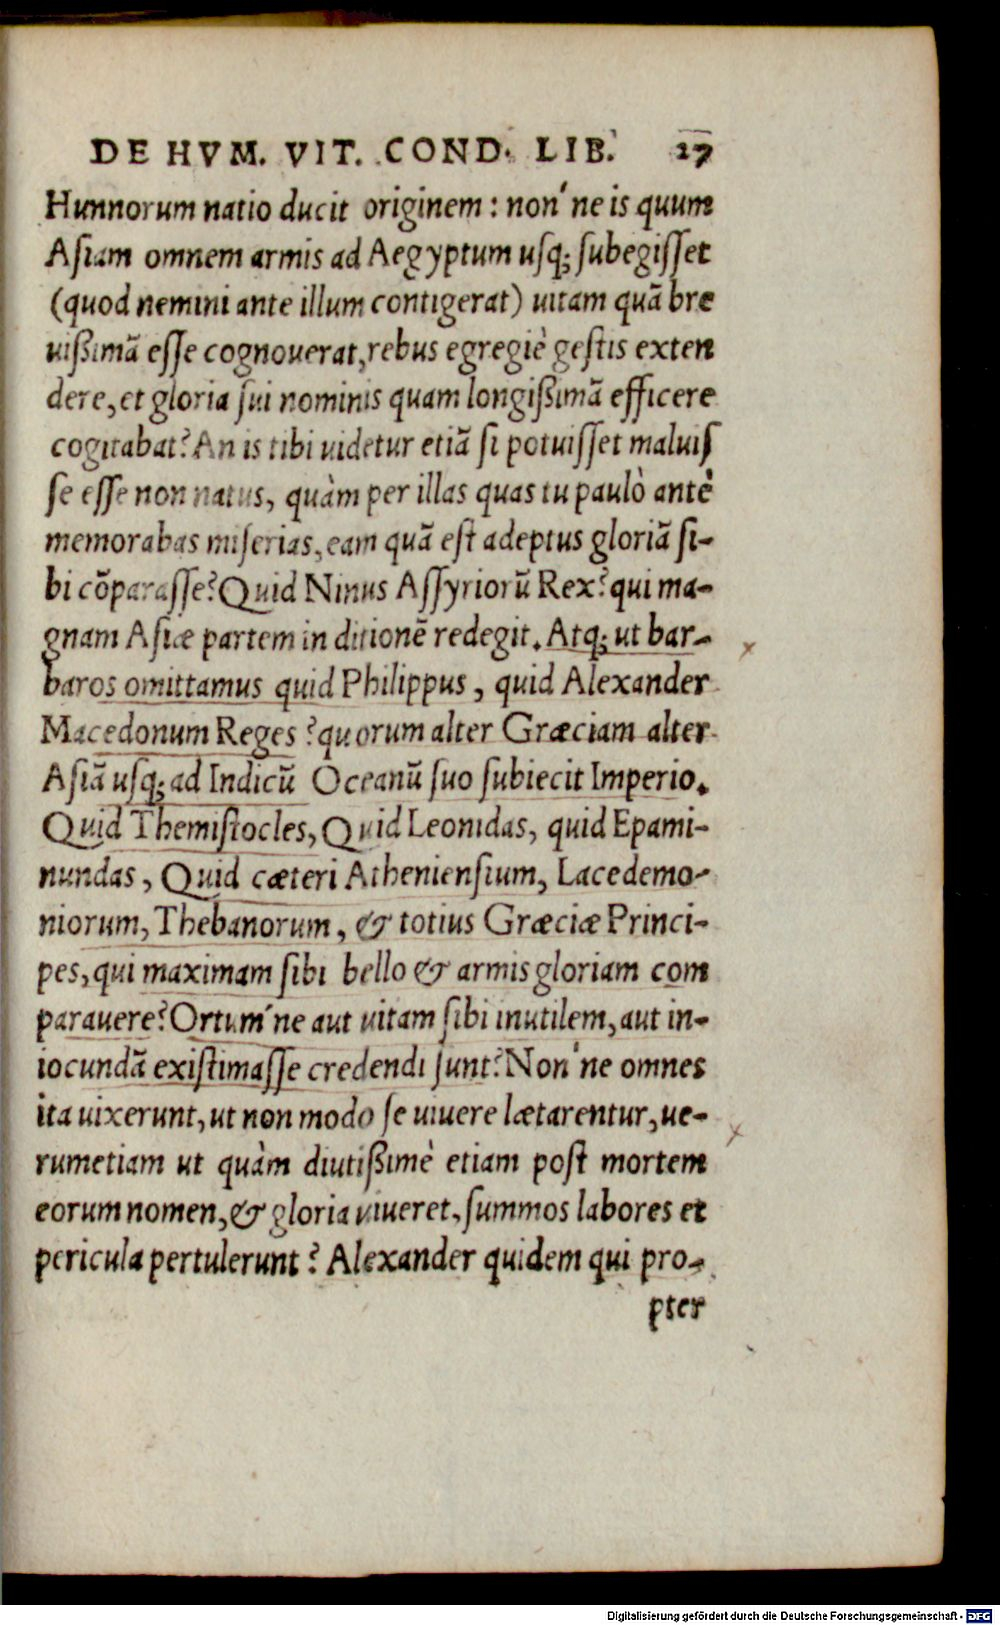 DE HVM. VIT. COND. LIB. 27
Hunnorum natio ducit originem : non´ne is quum
Aſiam omnem armis ad Aegyptum uſq; ſubegiſſet
(quod nemini ante illum contigerat) uitam quã bre
uißimã eſſe cognouerat, rebus egregiè geſtis exten
dere, et gloria ſui nominis quam longißimã efficere
cogitabat? An is tibi uidetur etiã ſi potuiſſet maluiſ
ſe eſſe non natus, quàm per illas quas tu paulò antè
memorabas miſerias, eam quã eſt adeptus gloriã ſi-
bi cõparaſſe? Quid Ninus Aſſyriorũ Rex? qui ma-
gnam Aſiæ partem in ditionẽ redegit. Atq; ut bar-
baros omittamus quid Philippus, quid Alexander
Macedonum Reges ? quorum alter Græciam alter
Aſiã uſq; ad Indicũ Oceanũ ſuo ſubiecit Imperio.
Quid Themiſtocles, Quid Leonidas, quid Epami-
nundas, Quid cæteri Athenienſium, Lacedemo-
niorum, Thebanorum, & totius Græciæ Princi-
pes, qui maximam ſibi bello & armis gloriam com
parauere? Ortum´ne aut uitam ſibi inutilem, aut in-
iocundã exiſtimaſſe credendi ſunt? Non´ne omnes
ita uixerunt, ut non modo ſe uiuere lætarentur, ue-
rumetiam ut quàm diutißimè etiam poſt mortem
eorum nomen, & gloria uiueret, ſummos labores et
pericula pertulerunt ? Alexander quidem qui pro-
pter
Digitalisierung gefördert durch die Deutsche Forschungsgemeinschaft - DFG